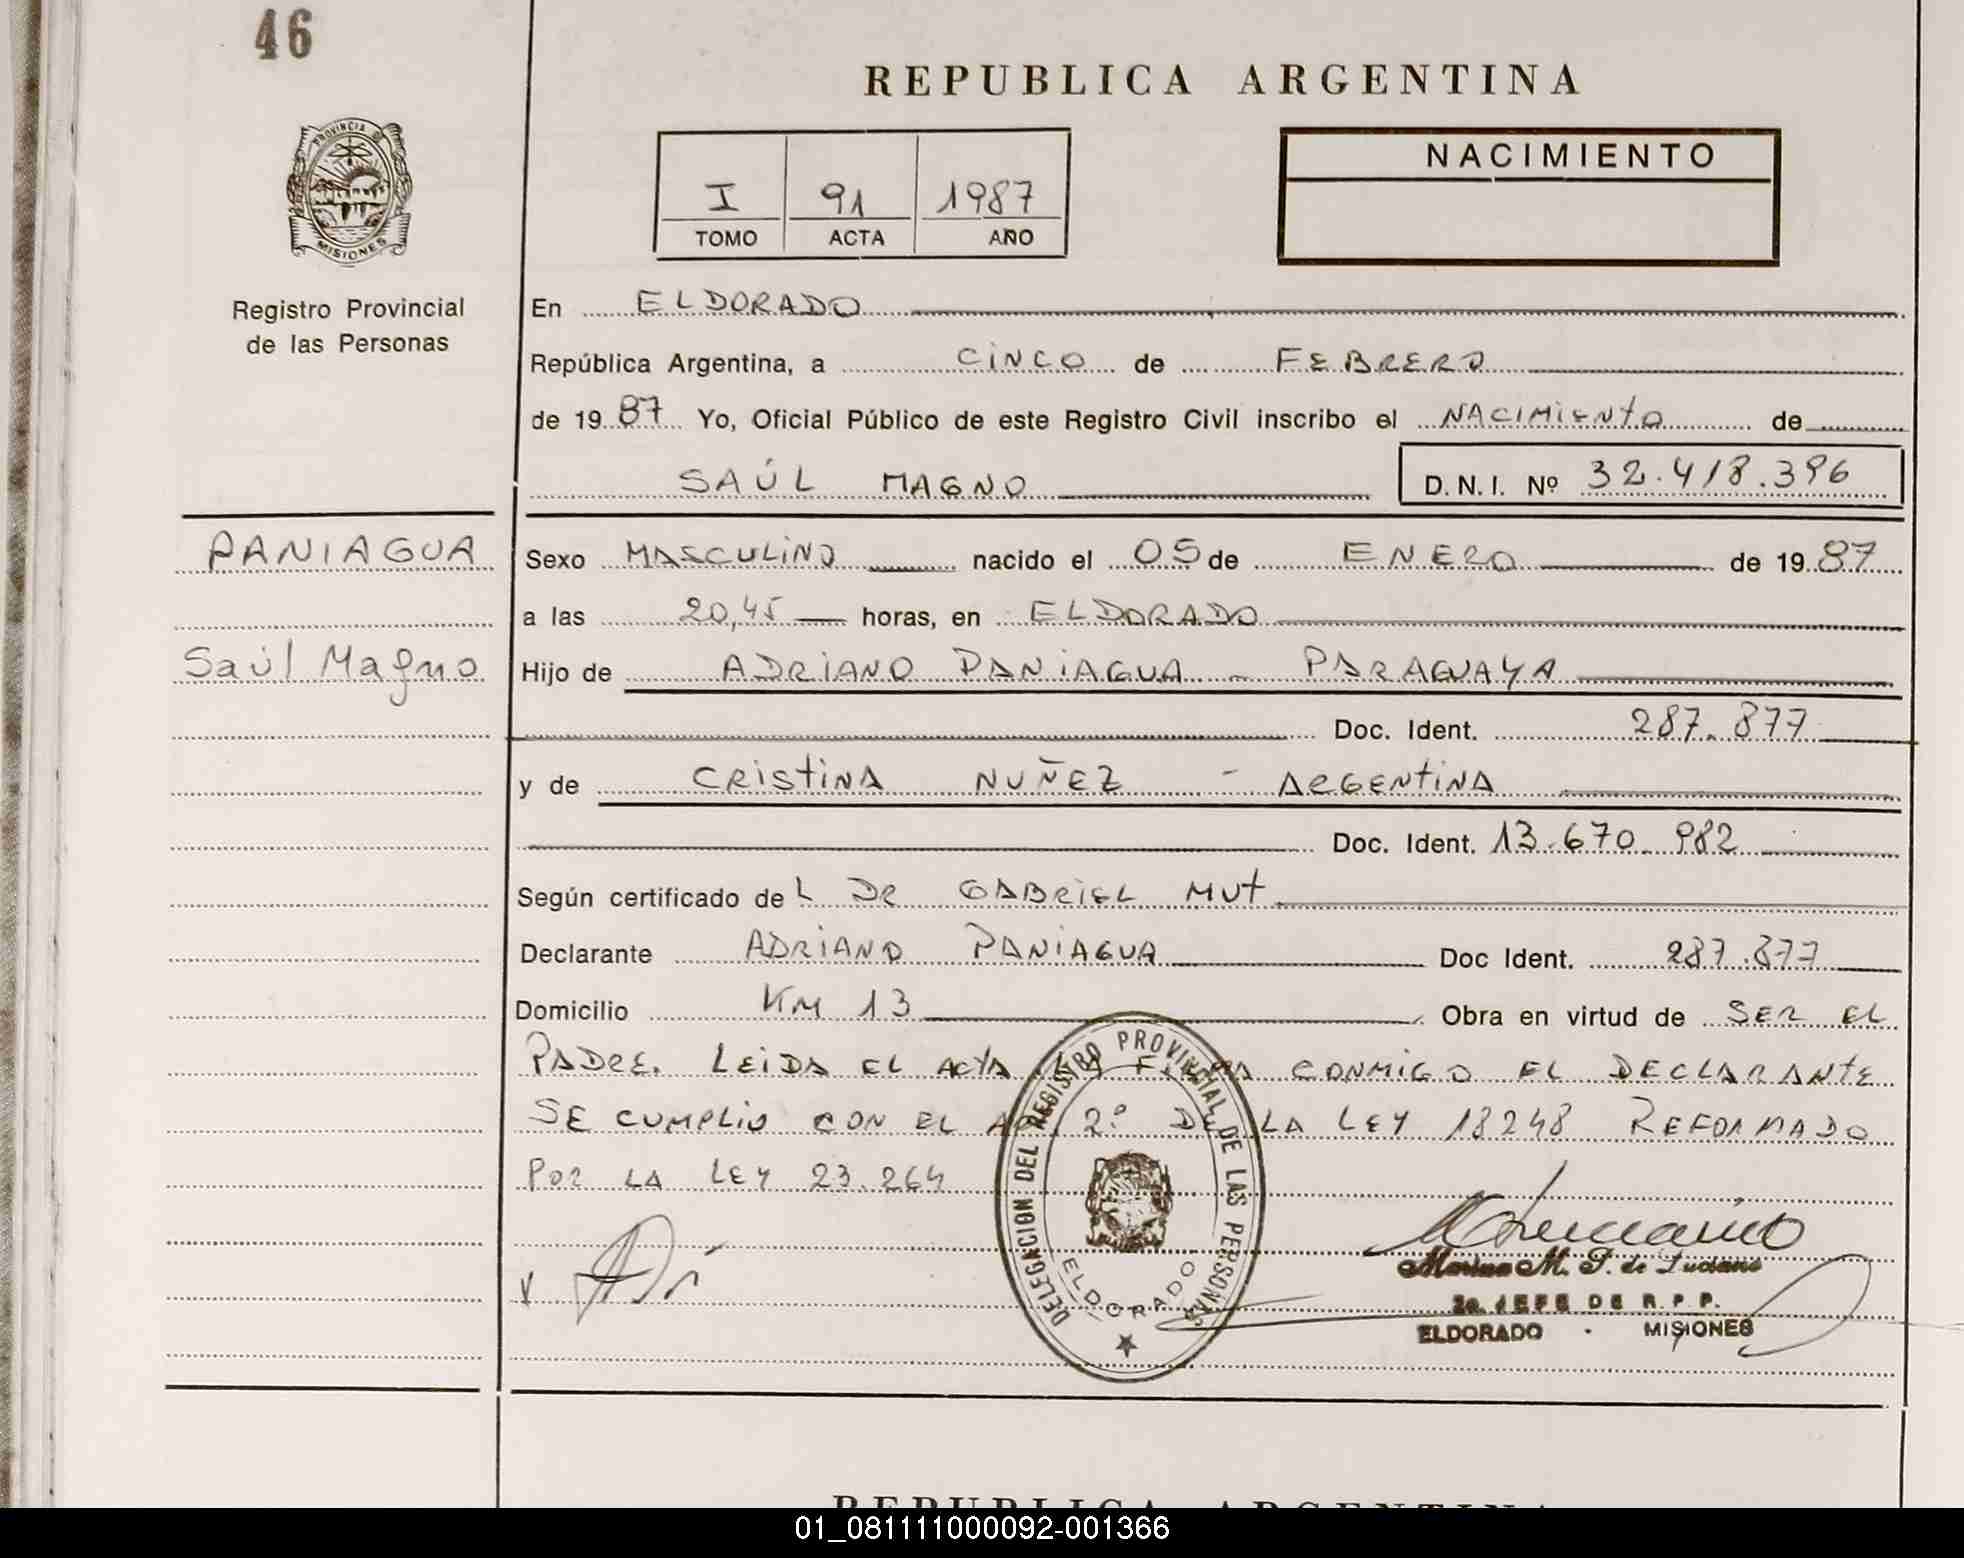 46
REPUBLICA ARGENTINA
PROVINCIA DE
MISIONES
Registro Provincial
de las Personas
I 91 1987
TOMO ACTA AÑO
NACIMIENTO
En ELDORADO
República Argentina, a CINCO de FEBRERO
de 1987 Yo, Oficial Público de este Registro Civil inscribo el NACIMIENTO de
SAÚL MAGNO D.N.I. Nº 32.418.396
PANIAGUA
Saúl Magno
Sexo MASCULINO nacido el 05 de ENERO de 1987
a las 20,45 horas, en ELDORADO
Hijo de ADRIANO PANIAGUA - PARAGUAYA
Doc. Ident. 287.877
y de CRISTINA NUÑEZ - ARGENTINA
Doc. Ident. 13.670.982
Según certificado de L DR GABRIEL MUT
Declarante ADRIANO PANIAGUA Doc Ident. 287.877
Domicilio KM 13 Obra en virtud de SER EL
PADRE. LEIDA EL ACTA LA FIRMA CONMIGO EL DECLARANTE
SE CUMPLIO CON EL ART 2º DE LA LEY 18248 REFORMADO
POR LA LEY 23.264
DELEGACION DEL REGISTRO PROVINCIAL DE LAS PERSONAS
ELDORADO
Marina M. P. de Luciano
2a. JEFE DE R.P.P.
ELDORADO - MISIONES
REPUBLICA ARGENTINA
01_081111000092-001366